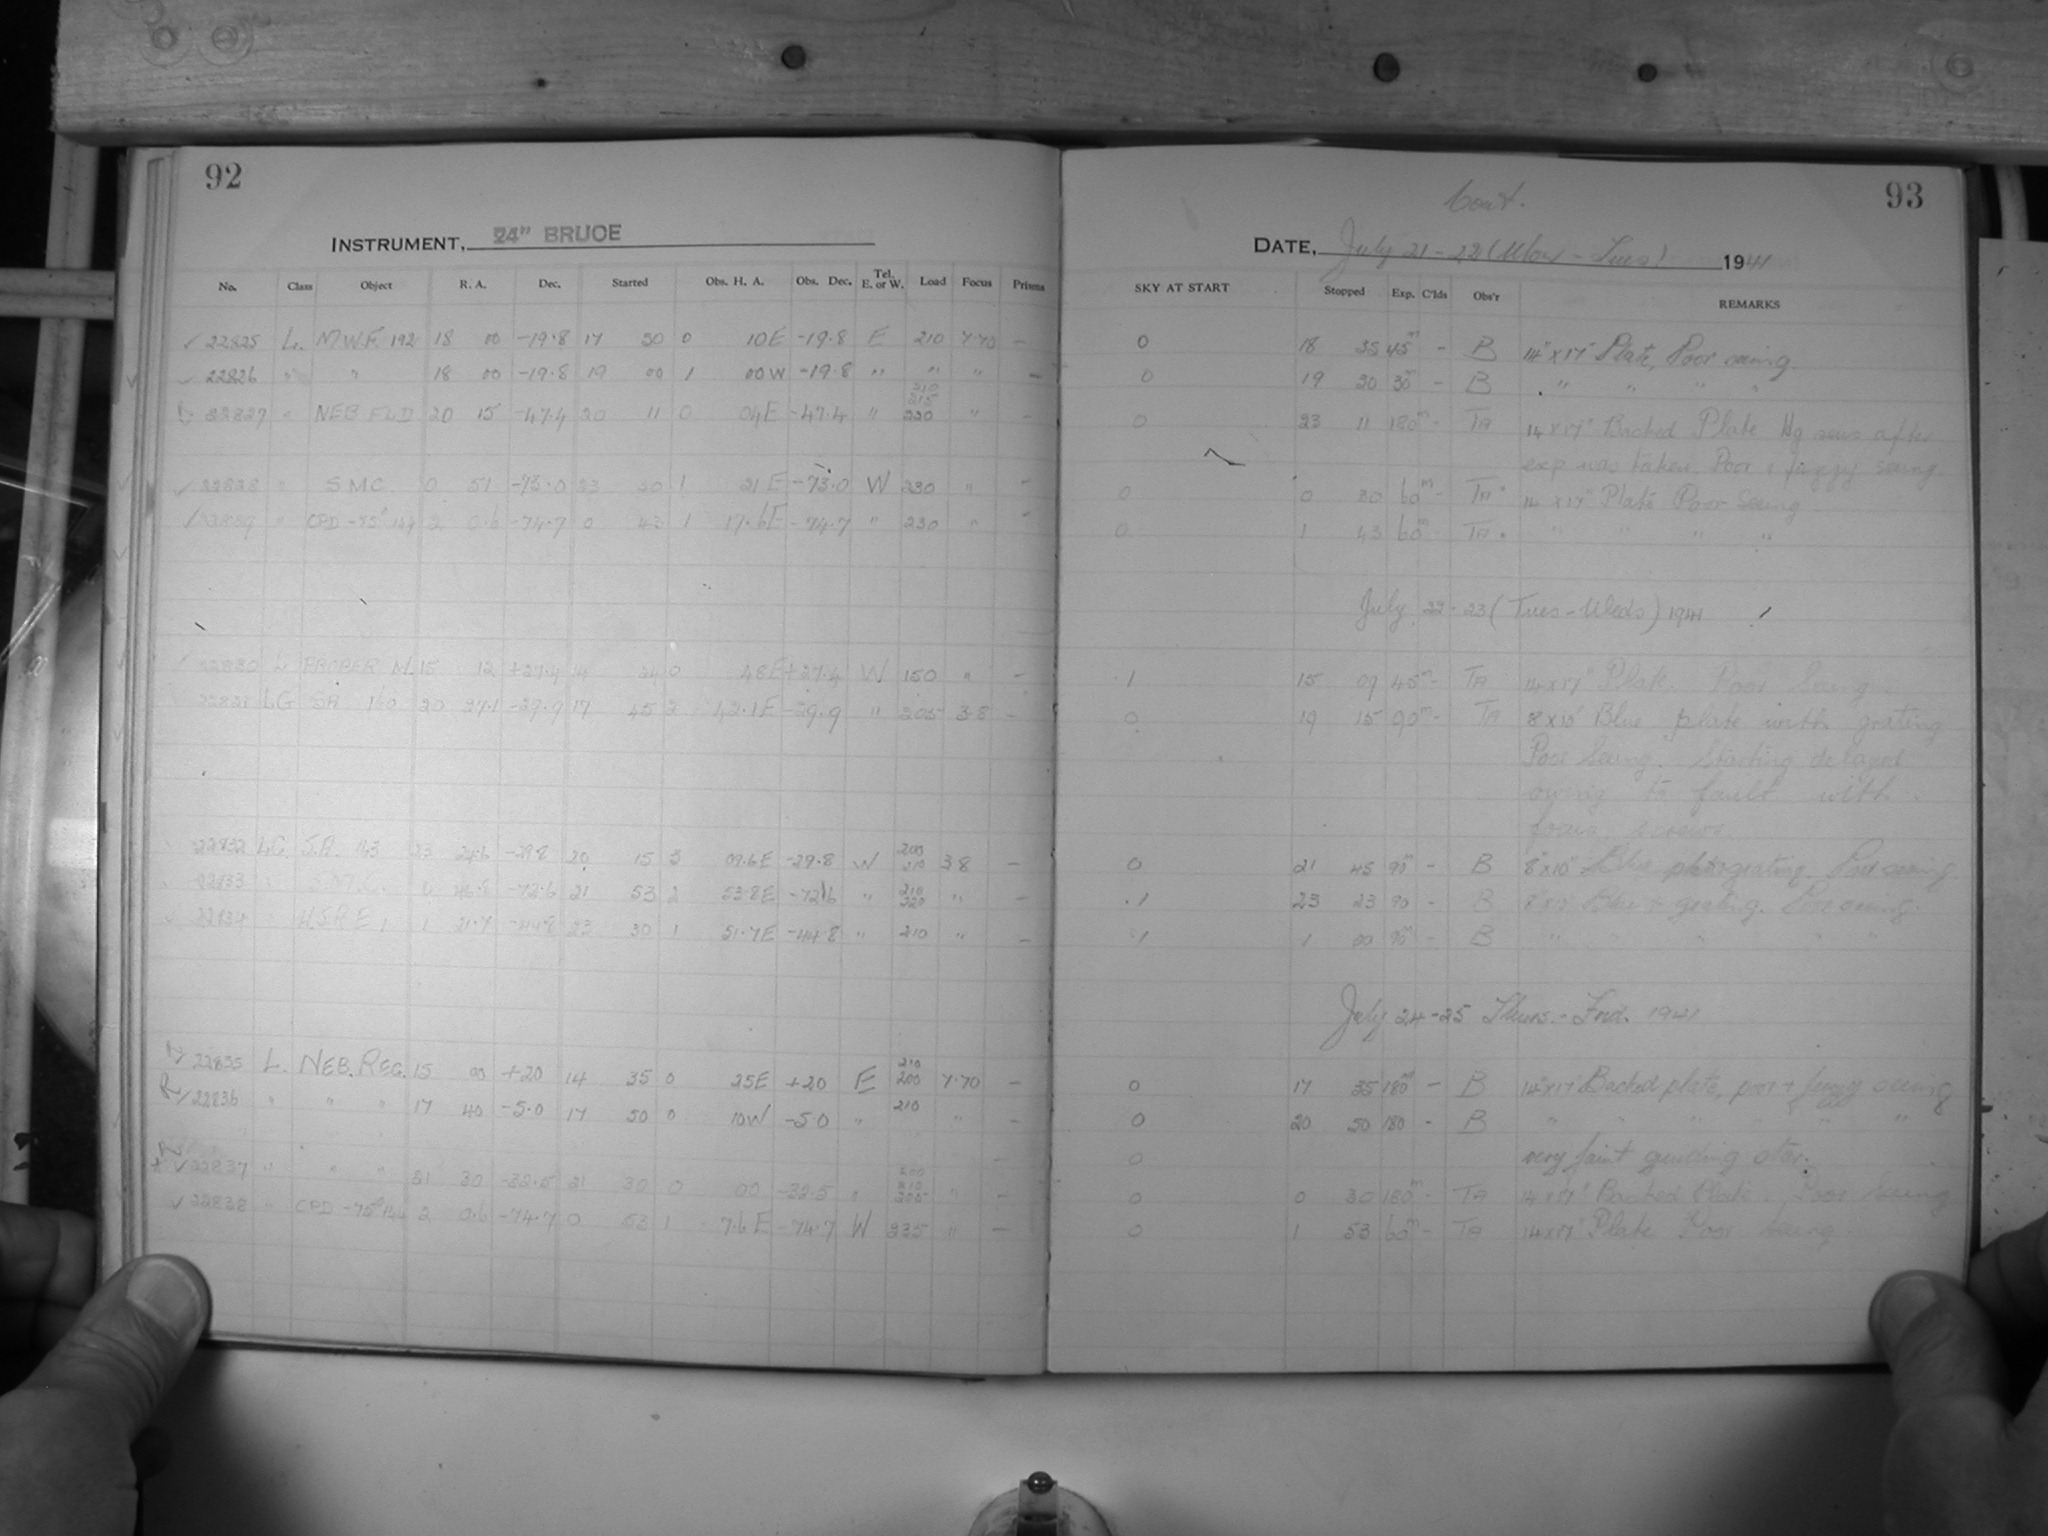 92
INSTRUMENT, 24" BRUCE
No. Class Object R. A. Dec. Started Obs. H. A. Obs. Dec. Tel. E. or W. Load Focus Prisms
22825 L. M.W.F. 192 18 00 -19.8 17 50 0 10E -19.8 E 210 7.70 -
22826 " " 18 00 -19.8 19 00 1 00W -19.8 " " " -
22827 " NEB FLD 20 15 -47.4 20 11 0 04E -47.4 " 210 215 220 " -
22828 " S.M.C. 0 51 -73.0 23 20 1 21E -73.0 W 230 " -
22829 " CPD -75° 144 2 0.6 -74.7 0 43 1 17.6E -74.7 " 230 " -
22830 L PROPER M. 15 12 +27.4 14 24 0 48E +27.4 W 150 " -
22831 LG SA 160 20 27.1 -29.9 17 45 2 42.1E -29.9 " 205 3.8 -
22832 LG S.A. 163 23 24.6 -29.8 20 15 3 09.6E -29.8 W 200 210 3.8 -
22833 " S.M.C. 0 46.8 -72.6 21 53 2 53.8E -72.6 " 210 220 " -
22834 " H.S.R E 1 1 21.7 -44.8 23 30 1 51.7E -44.8 " 210 " -
22835 L. NEB. REG. 15 00 +20 14 35 0 25E +20 E 210 200 7.70 -
22836 " " " 17 40 -5.0 17 50 0 10W -5.0 " 210 " -
22837 " " " 21 30 -32.5 21 30 0 00 -32.5 " 200 210 205 " -
22838 " CPD -75° 144 2 0.6 -74.7 0 53 1 7.6E -74.7 W 235 " -
93
Cont.
DATE, July 21-22 (Mon - Tues) 1941
SKY AT START Stopped Exp. C'lds Obs'r REMARKS
0 18 35 45m - B 14" x 17" Plate, Poor seeing.
0 19 30 30m - B " " " "
0 23 11 180m - TA 14 x 17" Backed Plate Hg seen after
exp was taken. Poor & fuzzy seeing.
0 0 20 60m - TA 14 x 17" Plate Poor Seeing
0 1 43 60m - TA " " " "
July 22-23 (Tues - Weds) 1941
.1 15 09 45m - TA 14 x 17" Plate. Poor Seeing.
0 19 15 90m - TA 8 x 10" Blue plate with grating
Poor Seeing. Starting delayed
owing to fault with
focus screws
0 21 45 90m - B 8" x 10" Blue plate + grating. Poor seeing.
.1 23 23 90 - B 8" x 10" Blue + grating. Poor seeing.
.1 1 00 90m - B " " " " " "
July 24-25 Thurs. - Frid. 1941
0 17 35 180m - B 14" x 17" Backed plate, poor + fuzzy seeing
0 20 50 180 - B " " " " " "
0 very faint guiding star.
0 0 30 180m - TA 14 x 17" Backed Plate. Poor Seeing
0 1 53 60m - TA 14 x 17" Plate Poor Seeing